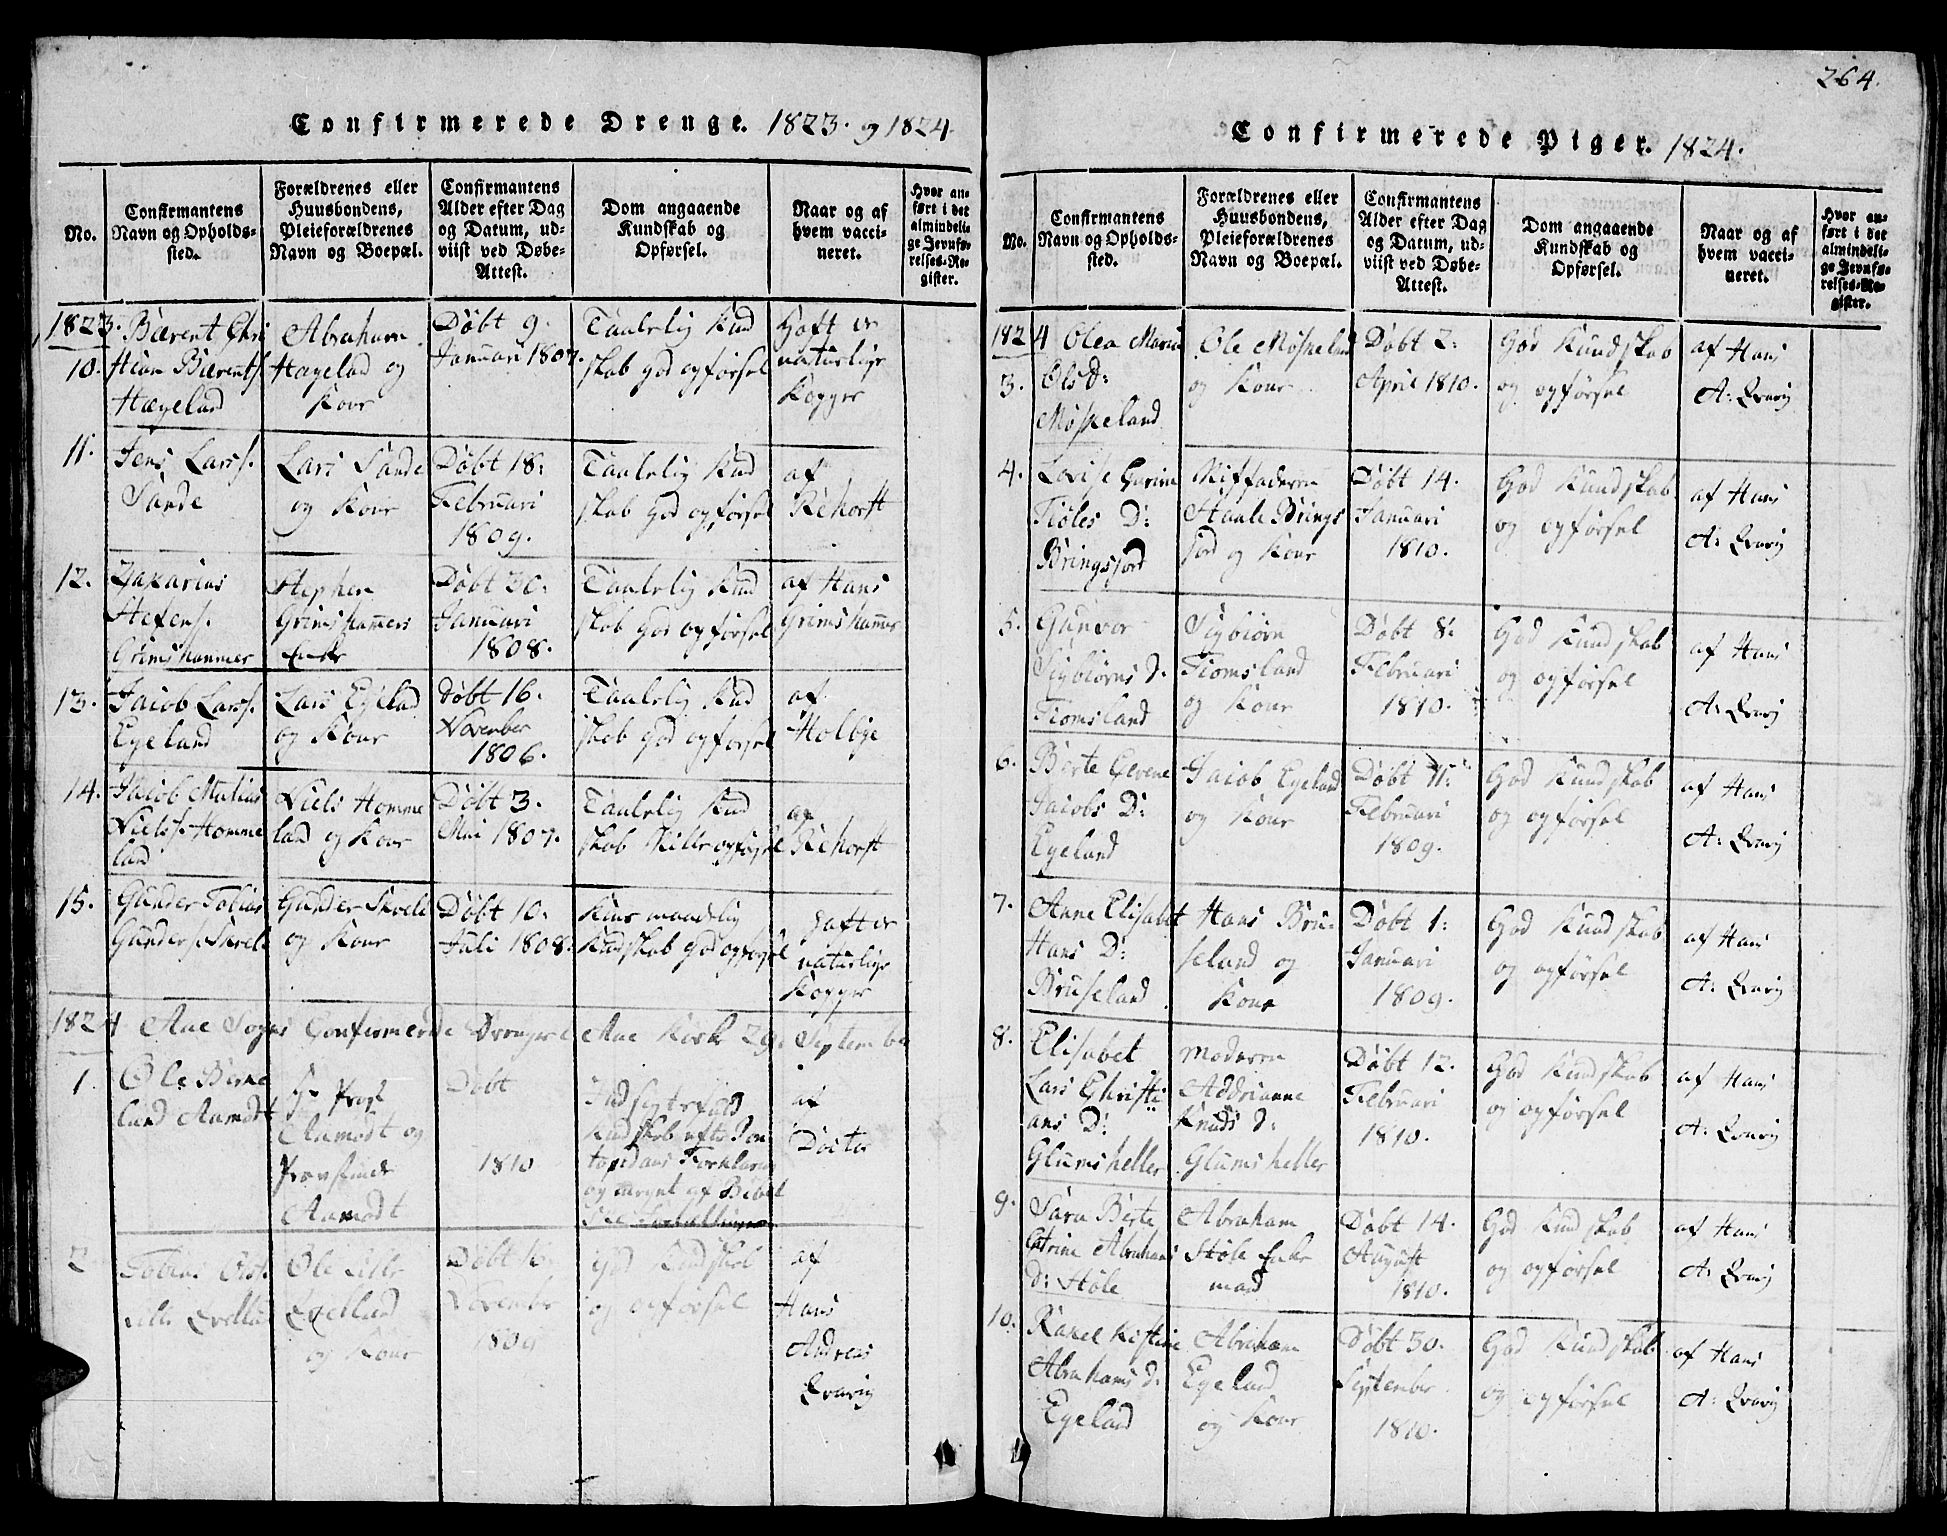 Confirmerede Drenge. 1823. og 1824.
No.
Confirmantens
Navn og Opholds-
sted.
Forældrenes eller
Huusbondens,
Pleieforældrenes
Navn og Boepæl.
Confirmantens
Alder efter Dag
og Datum, ud-
viist ved Døbe-
Attest.
Dom angaaende
Kundskab og
Opførsel.
Naar og af
hvem vacci-
neret.
Hvor an-
ført i det
almindeli-
ge Jevnfø-
relses-Re-
gister.
1823.
10.
Bærent Chri
stian Bærents.
Hægeland
Abraham
Hægeland og
Kone
Døbt 9.
Januari 1807.
Taalelig Kud
skab god opførsel
haft de
naturlige
Kopper
11.
Jens Lars s.
Sande
Lars Sande
og Kone
Døbt 18:
Februari
1809.
Taalelig Kud
skab god opførsel
af
Rehorst
12.
Zakarias
Stefens.
Grimshammer
Stephen
Grimshamers
Enke
Døbt 30:
Januari
1808.
Taalelig Kud
skab god opførsel
af Hans
Grimshammer
13.
Jacob Lars s.
Egeland
Lars Egeland
og Kone
Døbt 16.
November
1806.
Taalelig Kud
skab god opførsel
af
Holbye
14.
Jacob Matias
Niels s. Homme
land
Niels Homme
land og Kone
Døbt 3.
Mai 1807.
Taalelig Kud
skab stille opførsel
af
Rehorst
15.
Gunder Tobias
Gunders. Skrel.
Gunder
og Kone
Døbt 10:
Juli 1808.
Kudskab god opførsel
haft de
naturlige
Kopper
1824 Aae Sogns Confirmerede Drenge i Aae Kirke 29. September
1.
Ole Birke
land Aamodt
Hr Prost
Aamodt og
Aamodt
Døbt
1810
Kudskab efter Pon
topidans Forklaring
og meget af Bibel
af
Doctor
2
Tobias
Lille
Ole Lille
og Kone
Døbt
November
1809
god Kudskab
og opførsel
af
Hans
Andreas
Qvavig
264.
Confirmerede Piger. 1824.
No.
Confirmantens
Navn og Opholds-
sted.
Forældrenes eller
Huusbondens,
Pleieforældrenes
Navn og Boepæl.
Confirmantens
Alder efter Dag
og Datum, ud-
viist ved Døbe-
Attest.
Dom angaaende
Kundskab og
Opførsel.
Naar og af
hvem vacci-
neret.
Hvor an-
ført i det
almindeli-
ge Jevnfø-
relses-Re-
gister.
1824
3.
Olea Maria
Ols D:
Møskeland
Ole Møskeland
og Kone
Døbt 2:
April 1810.
God Kundskab
og opførsel
af Hans
A: Qvavig
4.
Lovise Gurine
Tiøles D:
Bringsjord
Stiffaderen
Staale Brings
jord og Kone
Døbt 14.
Januari
1810.
God Kundskab
og opførsel
af Hans
A: Qvavig
5.
Gunvor
Sigbiørns d.
Tiomsland
Sigbiørn
Tiomsland
og Kone
Døbt 8:
Februari
1810.
God Kundskab
og opførsel
af Hans
A: Qvavig
6.
Birte Gevene
Jacobs D:
Egeland
Jacob Egeland
og Kone
Døbt 11:
Februari
1809.
God Kundskab
og opførsel
af Hans
A: Qvavig
7.
Anne Elisabet
Hans D:
Bruseland
Hans Bru-
seland og
Kone
Døbt 1:
Januari
1809.
God Kundskab
og opførsel
af Hans
A: Qvavig
8.
Elisabet
Lars Christi
ans D:
Glumsheller
Moderen
Addrianne
Knuds d:
Glumsheller
Døbt 12.
Februari
1810.
God Kundskab
og opførsel
af Hans
A: Qvavig
9.
Sara Birte
Catrine Abrahams
d: Støle
Abraham
Støle Enke
mand
Døbt 14.
August
1810.
God Kundskab
og opførsel
af Hans
A: Qvavig
10.
Rakel Kistine
Abrahams d:
Egeland
Abraham
Egeland
og Kone
Døbt 30.
September
1810.
God Kundskab
og opførsel
af Hans
A: Qvavig